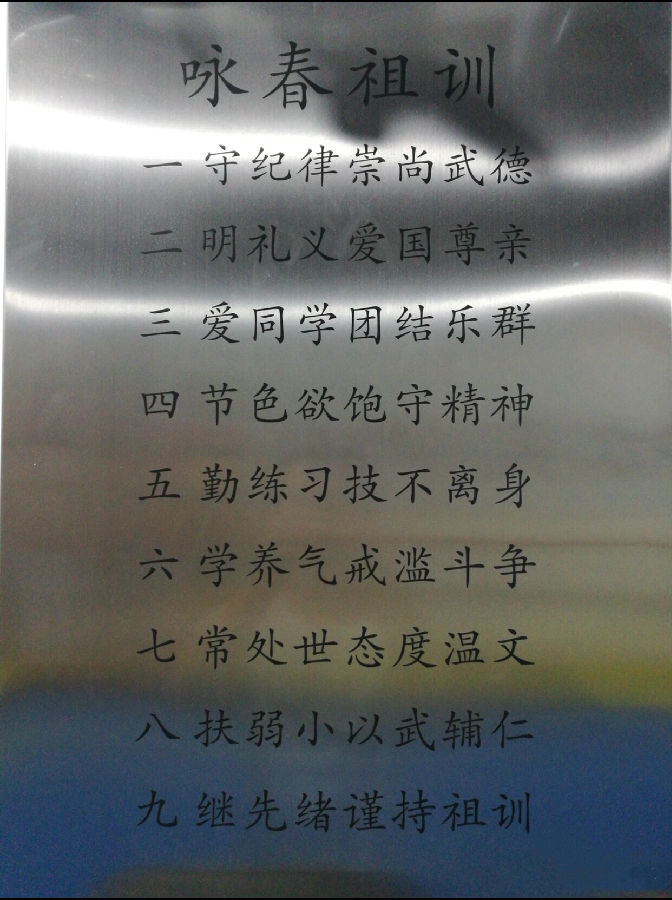 咏春祖训
一 守纪律崇尚武德
二 明礼义爱国尊亲
三 爱同学团结乐群
四 节色欲饱守精神
五 勤练习技不离身
六 学养气戒滥斗争
七 常处世态度温文
八 扶弱小以武辅仁
九 继先绪谨持祖训